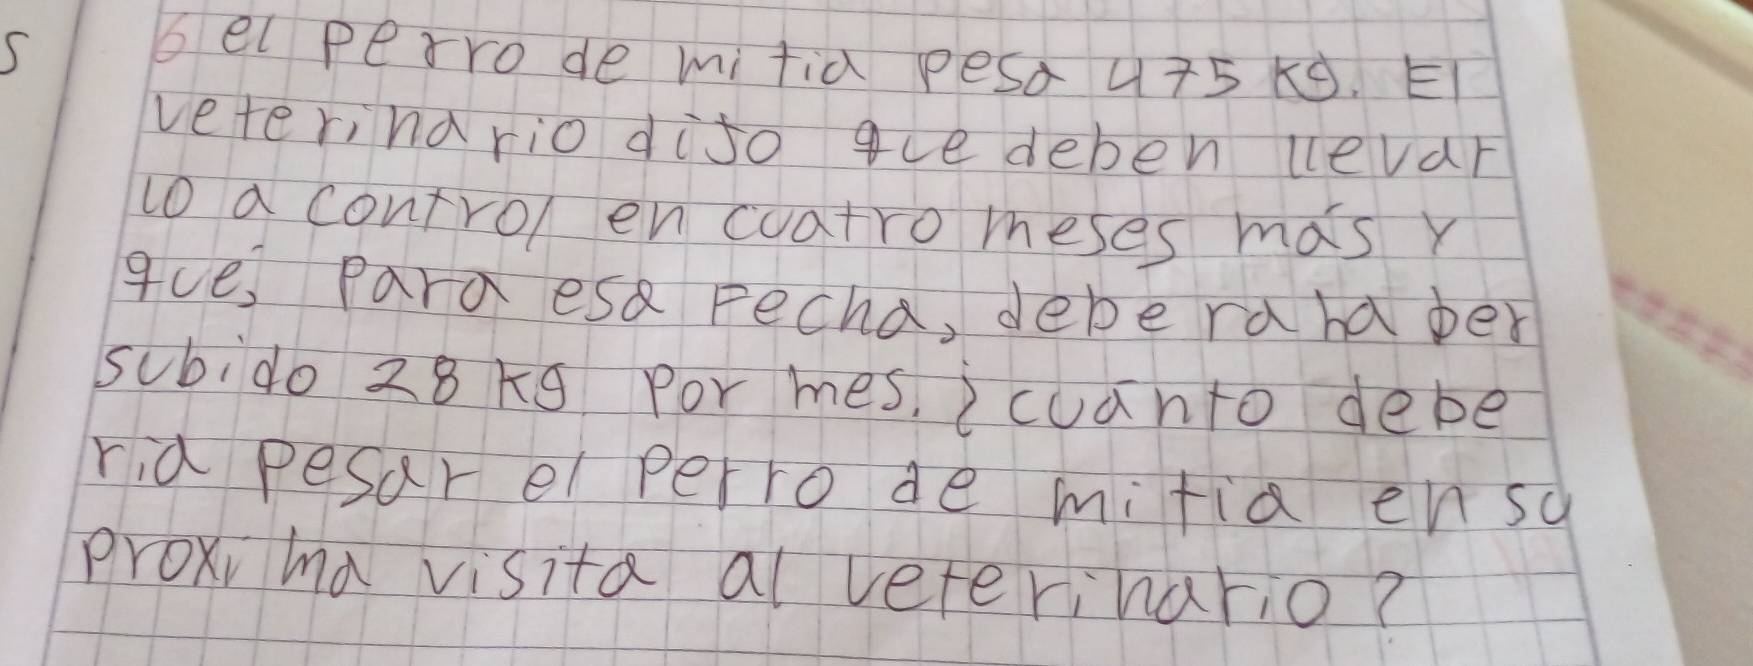 6 el perro de mi tia pesa 475 kg. El
veterinario dijo que deben llevar
lo a control en cuatro meses más y
que, para esa fecha, debera haber
subido 28 kg por mes. ¿cuánto debe
ria pesar el perro de mi tia en su
proxima visita al veterinario?